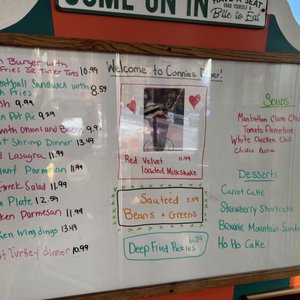 COME ON IN
HAVE A SEAT
GRAB YOURSELF A
Bite to Eat
Burger with
Fries or Tater Tots 10.99
Meatball Sandwich with
Fries 8.59
9.99
Pot Pie 9.29
with Onions and Bacon 9.99
Shrimp Dinner 13.49
Lasagna 11.99
Parm 11.99
Greek Salad 11.99
Plate 12.99
Parmesan 11.99
Wing dings 13.49
Turkey dinner 10.99
Welcome to Connies Diner!
Red Velvet 11.49
loaded Milkshake
Sauteed 5.99
Beans + Greens
6.29
Deep Fried Pickles
Soups
Manhattan Clam Cho
Tomato Florentine
White Chicken Chili
Chicken
Desserts
Carrot Cake
Strawberry Shortcake
Brownie Mountain Sunda
Ho Ho Cake